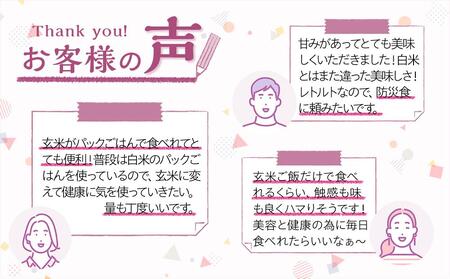 Thank you!
お客様の声
甘みがあってとても美味
しくいただきました！白米
とはまた違った美味しさ！
レトルトなので、防災食
に頼みたいです。
玄米がパックごはんで食べれてと
ても便利！普段は白米のパックご
はんを使っているので、玄米に変
えて健康に気を使っていきたい。
量も丁度いいです。
玄米ご飯だけで食べ
れるくらい、触感も味
も良くハマりそうです！
美容と健康の為に毎日
食べれたらいいなぁ～